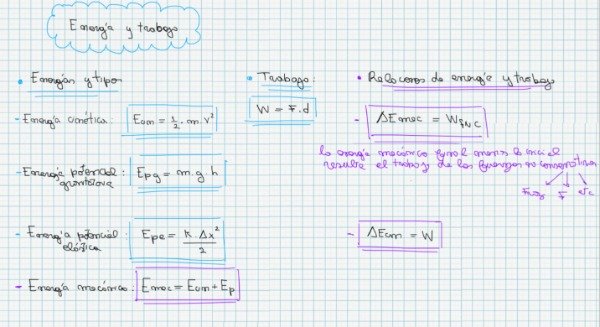 Energía y trabajo
• Energías y tipos
- Energía cinética: Ecin = 1/2 . m v²
- Energía potencial gravitatoria: Epg = m . g . h
- Energía potencial elástica: Epe = K . Δx² / 2
- Energía mecánica: Emec = Ecin + Ep
• Trabajo:
W = F . d
• Relaciones de energía y trabajo
- ΔEmec = WFNC
la energía mecánica final menos la inicial
resulta el trabajo de las fuerzas no conservativas
Froz F etc
- ΔEcin = W